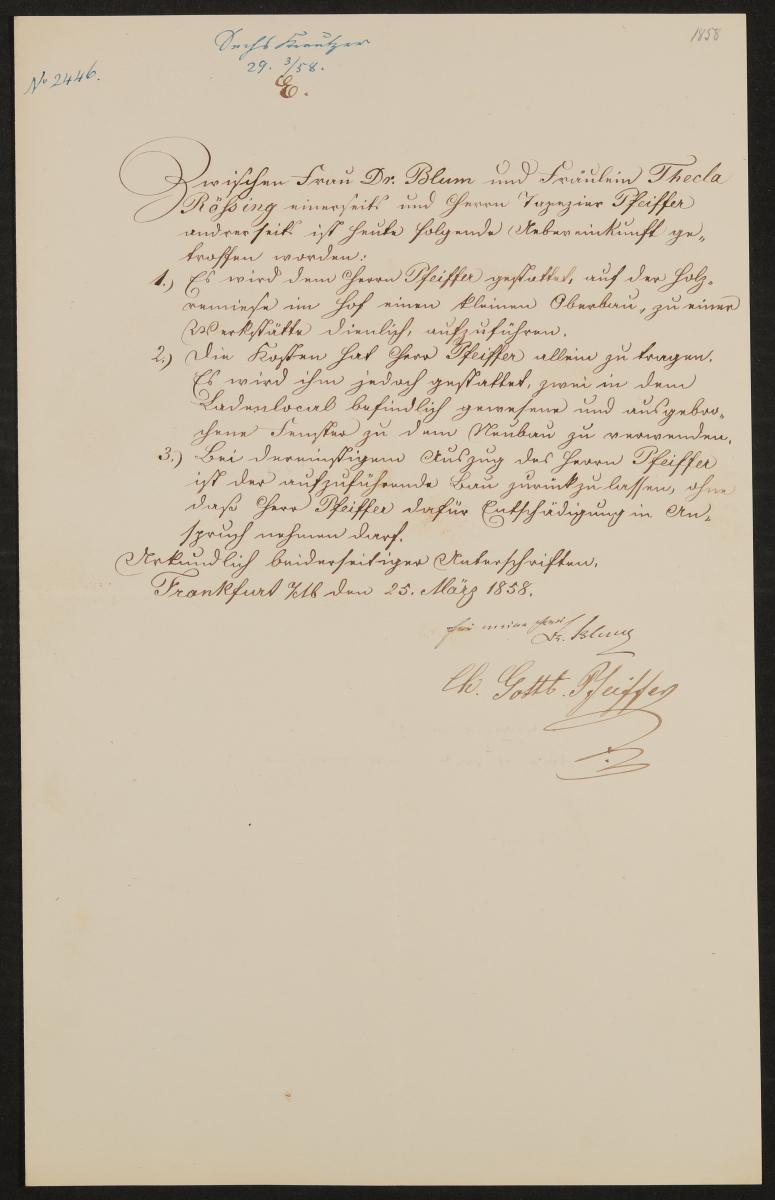 1858
Sechs Kreutzer
29. 3/58.
No 2446.
E.
Zwischen Frau Dr. Blum und Fräulein Thecla
Rößing einerseits und Herrn Tapezier Pfeiffer
andrerseits ist heute folgende Uebereinkunft ge„
troffen worden:
1.) Es wird dem Herrn Pfeiffer gestattet, auf der Holz„
remiese im Hof einen kleinen Oberbau, zu einer
Werkstätte dienlich, aufzuführen.
2.) Die Kosten hat Herr Pfeiffer allein zu tragen.
Es wird ihm jedoch gestattet, zwei in dem
Ladenlocal befindlich gewesene und ausgebro„
chene Fenster zu dem Neubau zu verwenden.
3.) Bei dereinstigem Auszug des Herrn Pfeiffer
ist der aufzuführende Bau zurückzulassen, ohne
daß Herr Pfeiffer dafür Entschädigung in An„
spruch nehmen darf.
Urkundlich beiderseitiger Unterschriften.
Frankfurt a/M den 25. März 1858.
Für meine Frau
Dr. Blum
Ch. Gottb. Pfeiffer